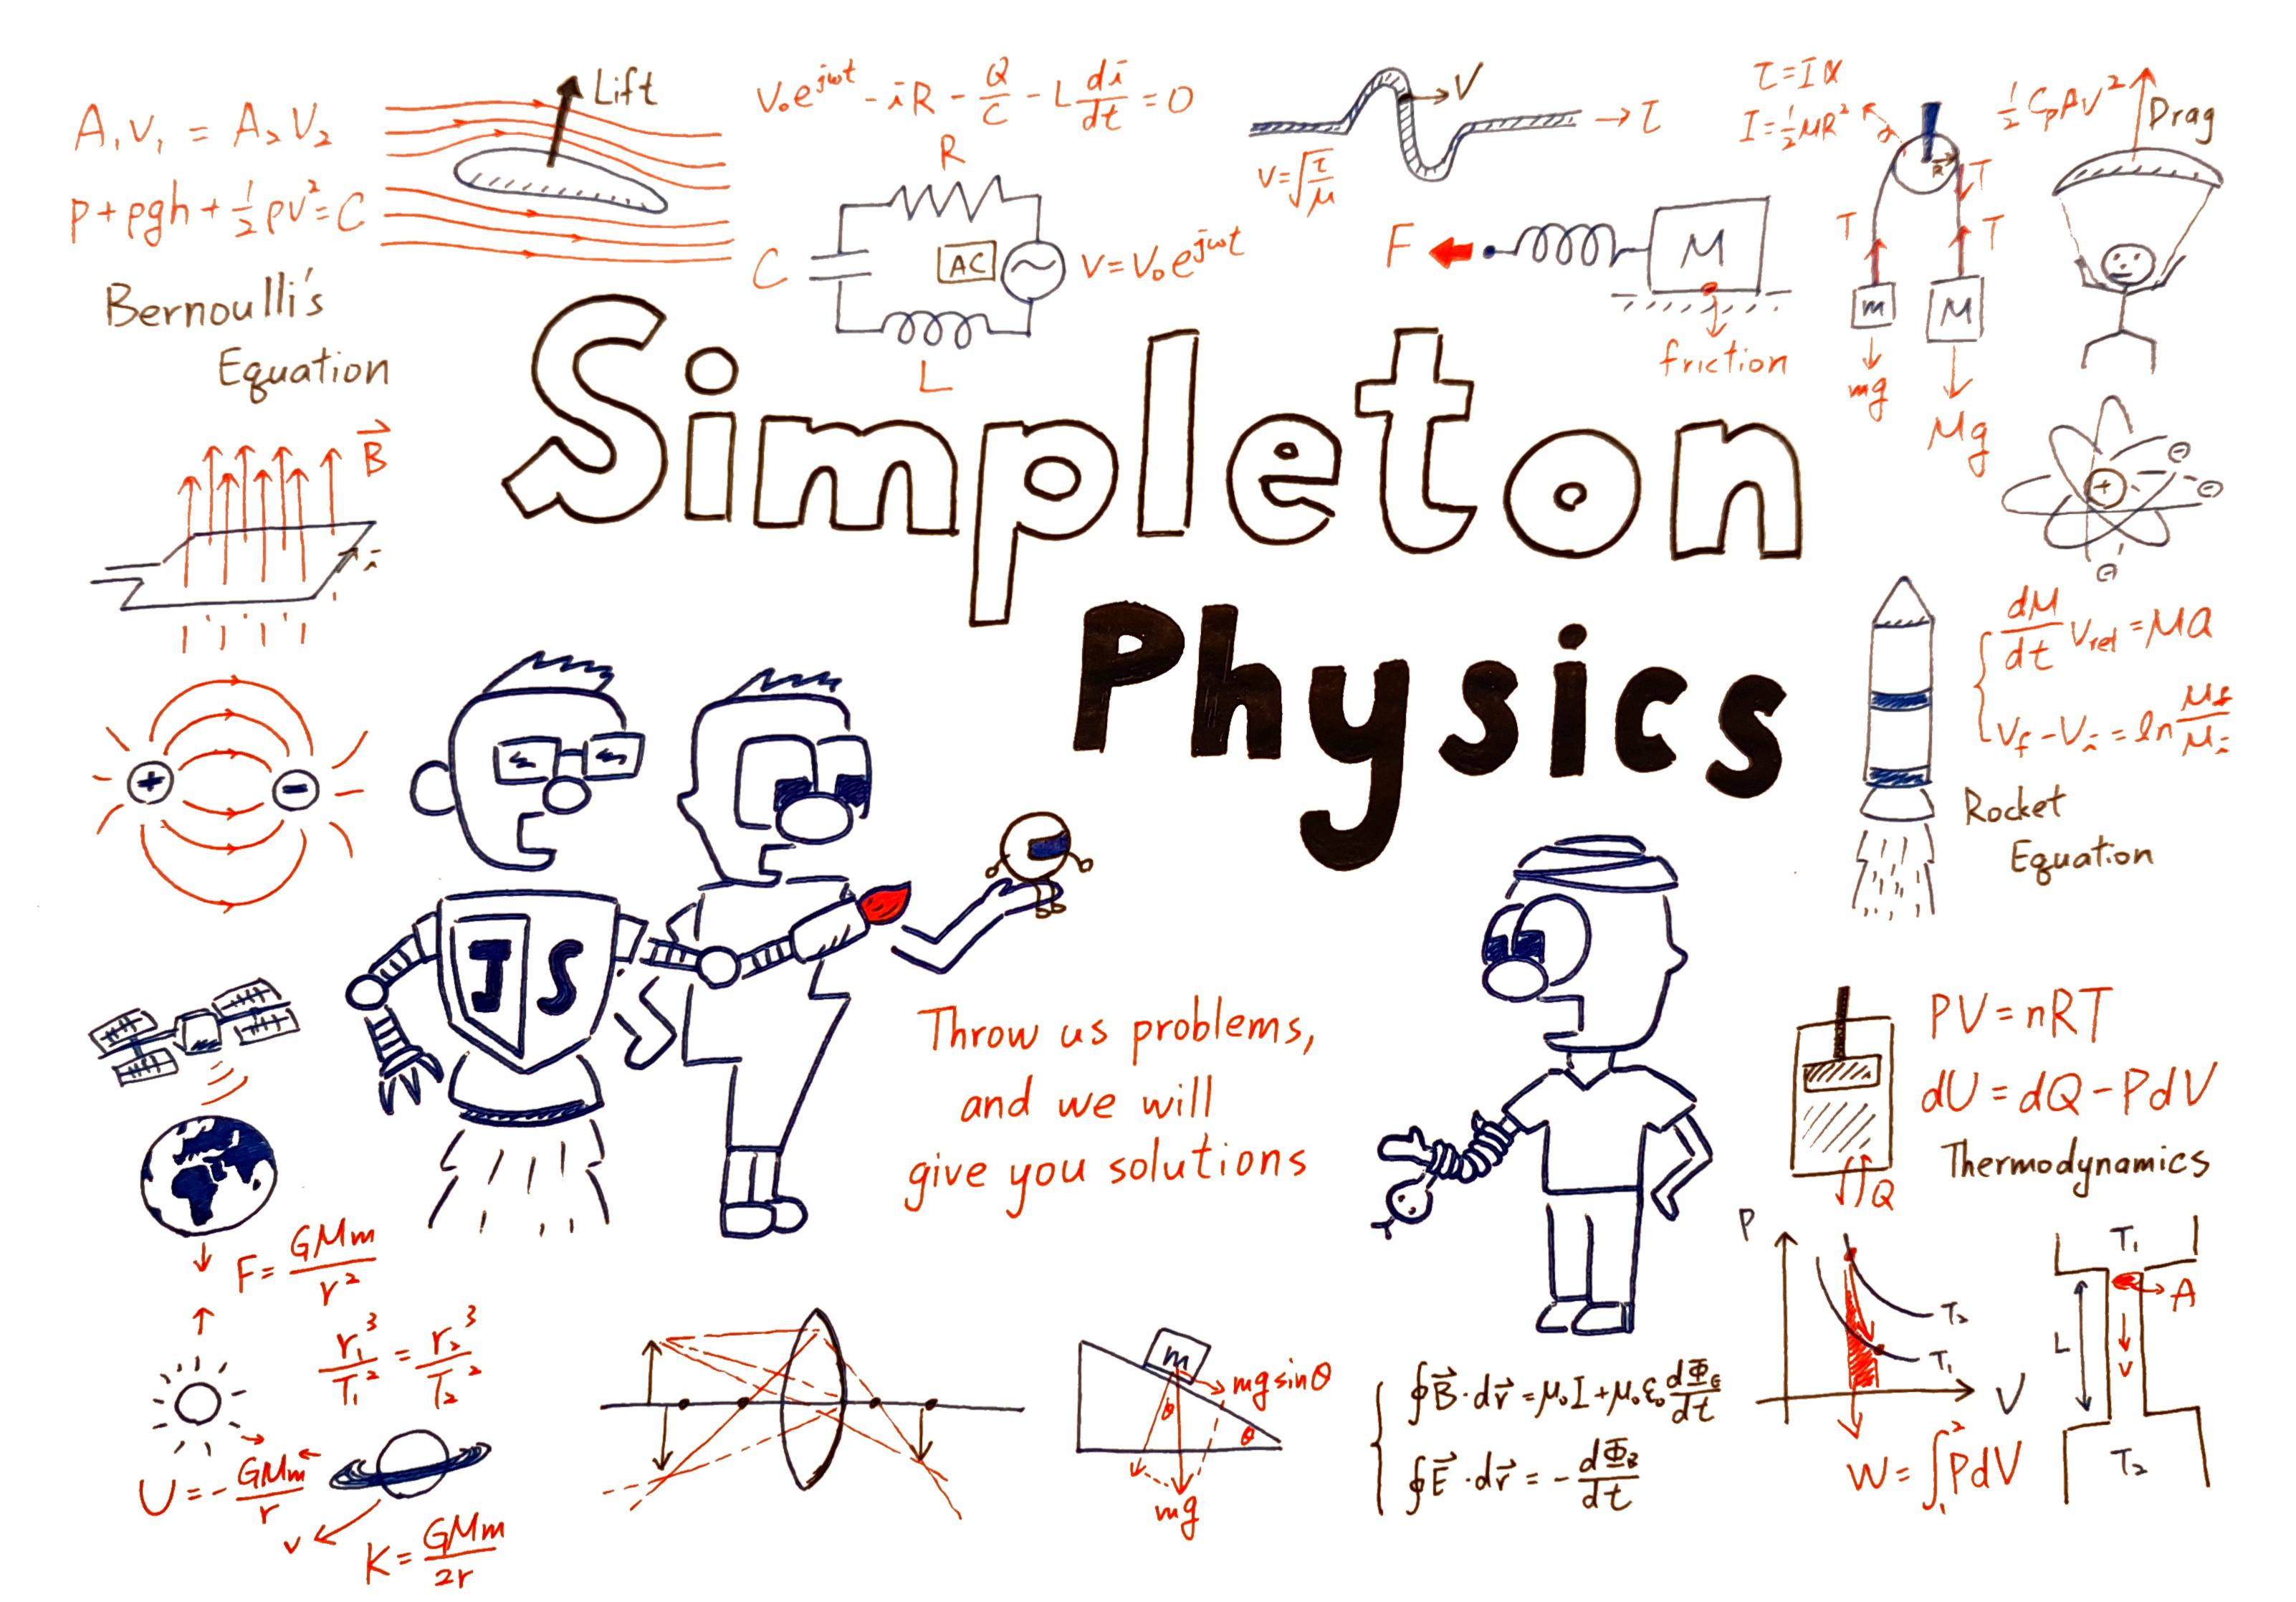 A₁v₁ = A₂v₂
p+ρgh+½ρv²=C
Bernoulli's
Equation
Lift
V₀e^{jωt} - iR - Q/C - L di/dt = 0
R
C
AC
V=V₀e^{jωt}
L
V
→τ
v=√(τ/μ)
F
M
friction
τ=Iα
I=½MR²
R
T
T
T
m
M
mg
Mg
½CρAv²
Drag
B⃗
i
Simpleton
Physics
+
-
-
-
dM/dt v_rel = Ma
v_f - v_i = ln M_f/M_i
Rocket
Equation
+
-
J S
Throw us problems,
and we will
give you solutions
PV=nRT
dU=dQ-PdV
Thermodynamics
Q
F=GMm/r²
r₁³/T₁² = r₂³/T₂²
U=-GMm/r
v
K=GMm/2r
m
mg sinθ
θ
θ
mg
∮B⃗·dr⃗=μ₀I+μ₀ε₀ dΦ_E/dt
∮E⃗·dr⃗=-dΦ_B/dt
P
T₂
T₁
V
W=∫₁²PdV
T₁
A
L
v
T₂